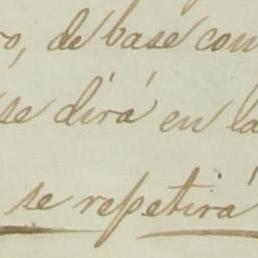 ro, de base con
se dirá en la
se repetirá